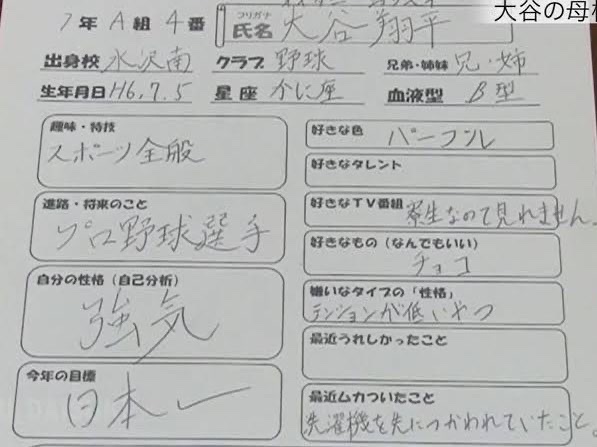 大谷の母
1年 A組 4番
フリガナ
氏名 大谷 翔平
出身校 水沢南 クラブ 野球 兄弟・姉妹 兄・姉
生年月日 H6.7.5 星座 かに座 血液型 B型
趣味・特技
スポーツ全般
進路・将来のこと
プロ野球選手
自分の性格(自己分析)
強気
今年の目標
日本一
好きな色
パープル
好きなタレント
好きなTV番組
寮生なので見れません。
好きなもの(なんでもいい)
チョコ
嫌いなタイプの「性格」
テンションが低いやつ
最近うれしかったこと
最近ムカついたこと
洗濯機を先につかわれていたこと。